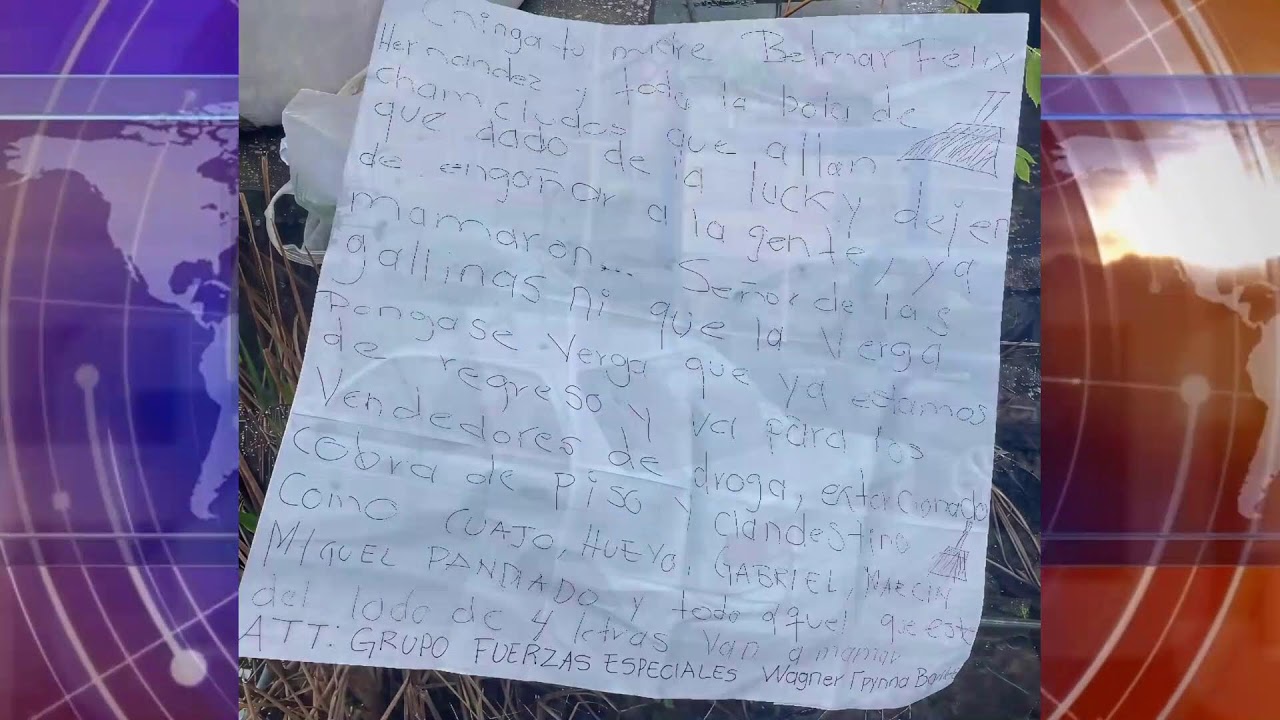 Chinga tu madre Belimar Félix
Hernandez y toda la bola de
chamcludos que allan
que dado de la lucky dejen
de engañar a la gente, ya
mamaron... Señor de las
gallinas ni que la verga
Pongase verga que ya estamos
de regreso y va para los
Vendedores de droga, extorcionado
cobra de piso y clandestino
Como CUAJO, HUEVO, GABRIEL,
MIGUEL y todo aquel que est
del lado de 4 letras van a mamar
ATT: GRUPO FUERZAS ESPECIALES Wagner Группа